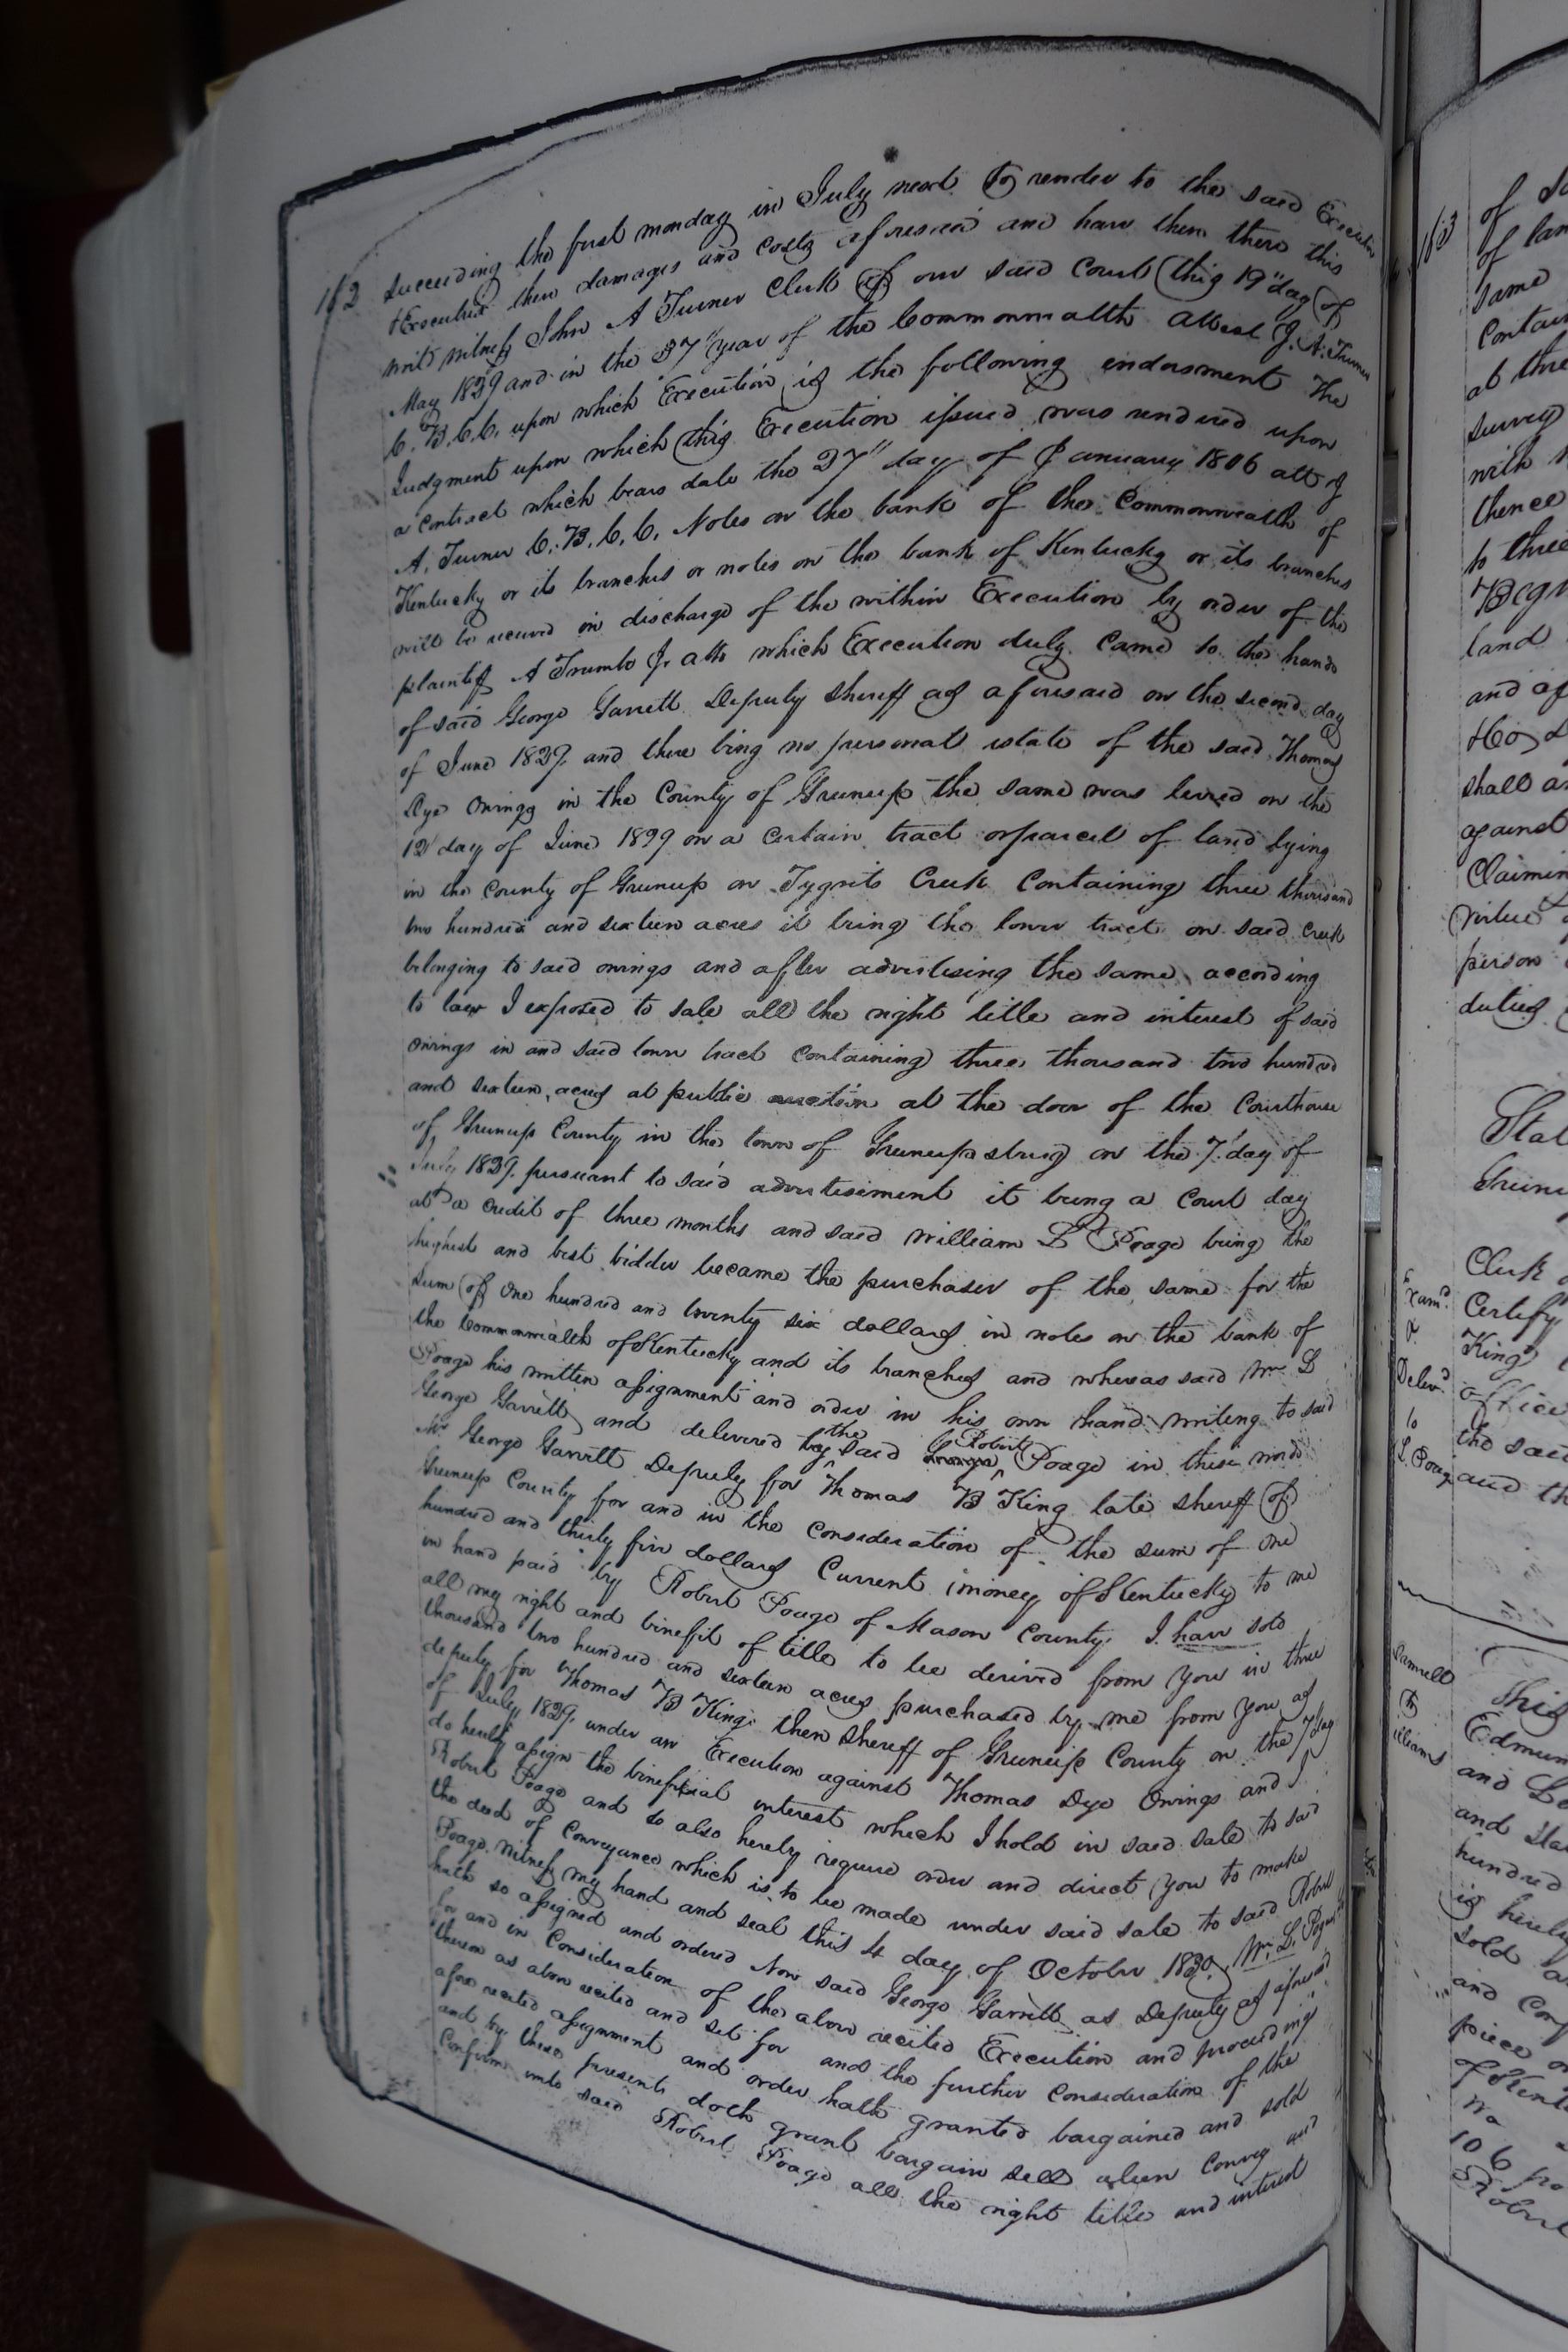 162
succeeding the first monday in July next to render to the said Executor
& Executrix their damages and costs aforesaid and have then there this
writ witness John A Turner Clerk of our said Court this 19" day of
May 1829 and in the 37" year of the Commonwealth attest J. A. Turner
C. B. C. C. upon which Execution is the following endorsment The
Judgment upon which this Execution issued was rendered upon
a contract which bears date the 27" day of January 1806 att J
A. Turner C. B. C. C. Notes on the bank of the Commonwealth of
Kentucky or its branches or notes on the bank of Kentucky or its branches
will be received in discharge of the within Execution by order of the
plaintiff A Trumbo Jr. atto which Execution duly came to the hands
of said George Garrett Deputy sheriff as aforesaid on the second day
of June 1829. and there being no personal estate of the said Thomas
Dye Owings in the County of Greenup the same was levied on the
12' day of June 1829 on a certain tract or parcel of land lying
in the County of Greenup on Tygrits Creek Containing three thousand
two hundred and sixteen acres it being the lower tract on said creek
belonging to said owings and after advertising the same according
to law I exposed to sale all the right title and interest of said
Owings in and said lower tract containing three thousand two hundred
and sixteen acres at public auction at the door of the Courthouse
of Greenup County in the town of Greenupsburg on the 7' day of
July 1829. pursuant to said advertisiment it being a Court day
at a credit of three months and said William L Poage being the
highest and best bidder became the purchaser of the same for the
sum of One hundred and twenty six dollars in notes on the bank of
the Commonwealth of Kentucky and its branches and whereas said Wm L
Poage his written assignment and order in his own hand writing to said
George Garrett and delivered by the said Robert Poage in these words
Mr George Garrett Deputy for Thomas B King late sheriff of
Greenup County for and in the consideration of the sum of one
hundred and thirty five dollars Current money of Kentucky to me
in hand paid by Robert Poage of Mason County. I have sold
all my right and benefit of title to be derived from you in three
thousand two hundred and sixteen acres purchased by me from you as
deputy for Thomas B King then sheriff of Greenup County on the 7' day
of July 1829. under an Execution against Thomas Dye Owings and I
do hereby assign the beneficial interest which I hold in said sale to said
Robert Poage and so also hereby require order and direct you to make
the deed of Conveyance which is to be made under said sale to said Robert
Poage. Witness my hand and seal this 4 day of October 1830. Wm. L. Poage
hath so assigned and ordered Now said George Garrett as Deputy as aforesaid
for and in Consideration of the above recited Execution and proceedings
thereon as above recited and set for and the further Consideration of the
afore recited assignment and order hath granted bargained and sold
and by these presents doth grant bargain sell alien Convey and
Confirm unto said Robert Poage all the right title and interest
163
of
of lan
same
Contain
at three
survey
with
thence
to three
Begi
land
and
shall a
against
Claimin
virtue
person
duties
Stat
Greenu
Clerk
Certify
King
office
the said
and th
Exam.d
&
Deliv.d
to
L. Poage
Samuell
to
illiams
This
Edmun
and
and
hundred
is hereby
sold a
and Conf
piece
of Kent
106 po
Robert